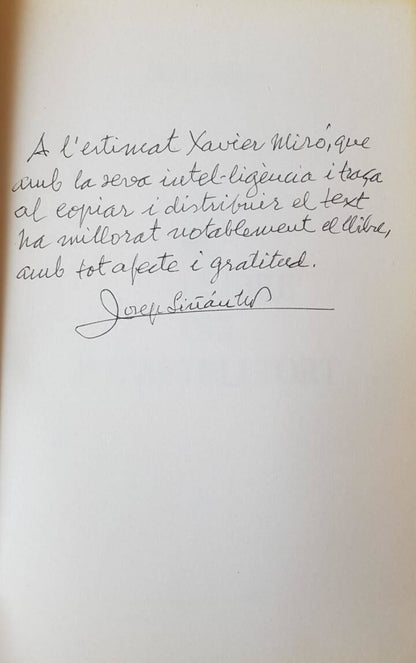 A l'estimat Xavier Miró, que
amb la seva intel·ligència i traça
al copiar i distribuir el text
ha millorat notablement el llibre,
amb tot afecte i gratitud.
Josep